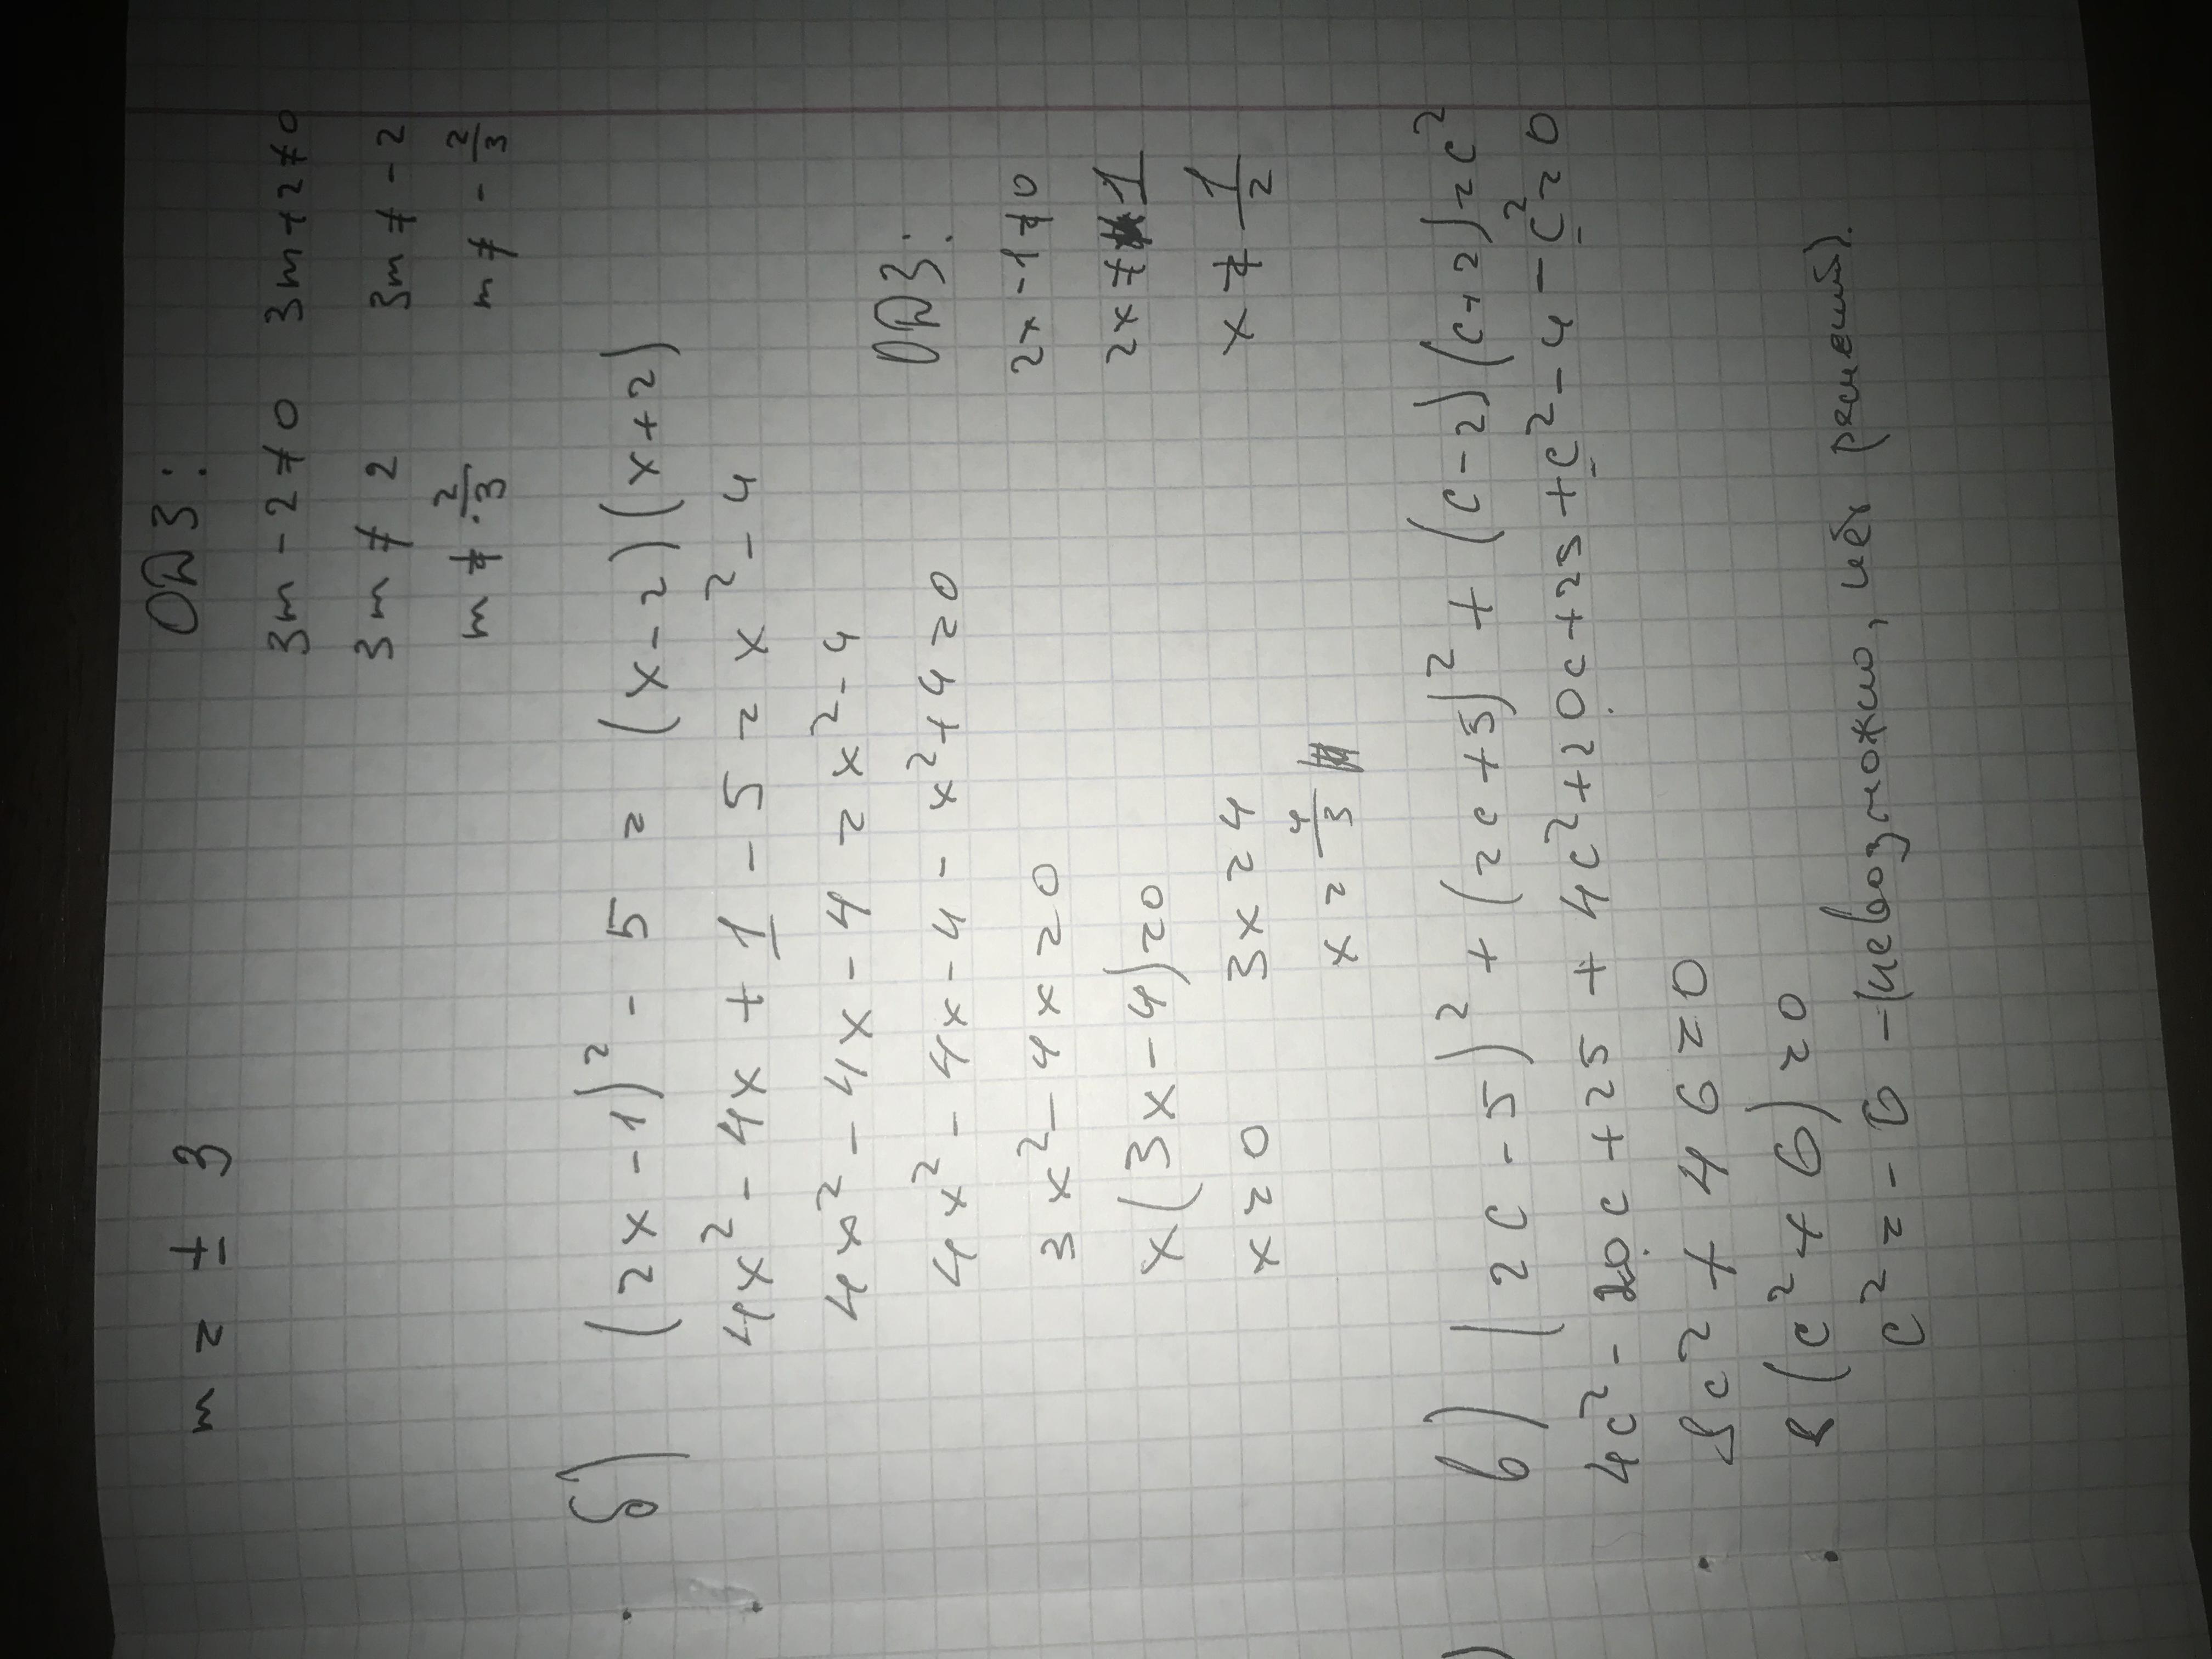 m = ± 3
ОДЗ:
3m - 2 ≠ 0 3m + 2 ≠ 0
3m ≠ 2 3m ≠ - 2
m ≠ 2/3 m ≠ - 2/3
б) (2x - 1)² - 5 = (x - 2)(x + 2)
4x² - 4x + 1 - 5 = x² - 4
4x² - 4x - 4 = x² - 4
4x² - 4x - 4 - x² + 4 = 0
3x² - 4x = 0
x(3x - 4) = 0
x = 0 3x = 4
x = 4/3
ОДЗ:
2x - 1 ≠ 0
2x ≠ 1
x ≠ 1/2
в) (2c - 5)² + (2c + 5)² + (c - 2)(c + 2) = c²
4c² - 20c + 25 + 4c² + 20c + 25 + c² - 4 - c² = 0
8c² + 46 = 0
8(c² + 6) = 0
c² = - 6 - (невозможно, нет решений).